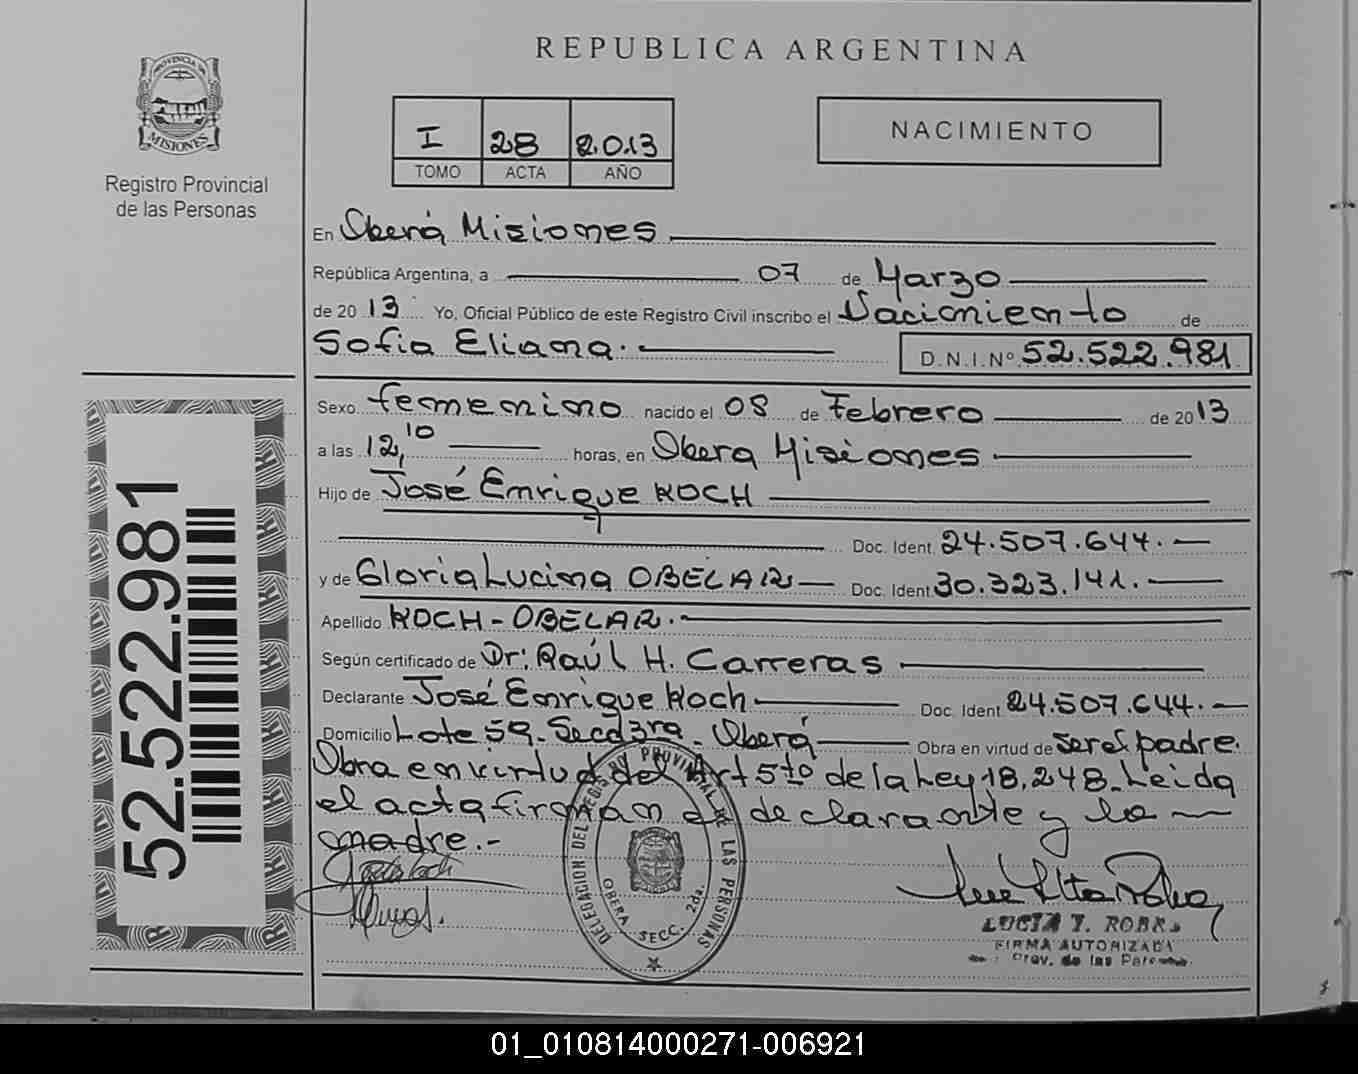 REPUBLICA ARGENTINA
PROVINCIA DE
MISIONES
Registro Provincial
de las Personas
I 28 2013
TOMO ACTA AÑO
NACIMIENTO
En Oberá Misiones
República Argentina, a 07 de Marzo
de 2013 Yo, Oficial Público de este Registro Civil inscribo el Nacimiento de
Sofia Eliana.
D.N.I.Nº 52.522.981
Sexo femenino nacido el 08 de Febrero de 2013
a las 12,10 horas, en Obera Misiones
Hijo de José Enrique KOCH
Doc. Ident. 24.507.644.
y de Gloria Lucina OBELAR Doc. Ident. 30.323.141.
Apellido KOCH - OBELAR.
Según certificado de Dr: Raúl H. Carreras
Declarante José Enrique Koch Doc. Ident. 24.507.644.
Domicilio Lote 59 - Secc 3ra - Oberá Obra en virtud de ser el padre.
Obra en virtud del Art 5to de la Ley 18.248. Leida
el acta firman el declarante y la
madre.-
DELEGACION DEL REGISTRO PROVINCIAL DE LAS PERSONAS
OBERA SECC. 2da.
LUCIA Y.
FIRMA AUTORIZADA
Prov. de las
52.522.981
01_010814000271-006921